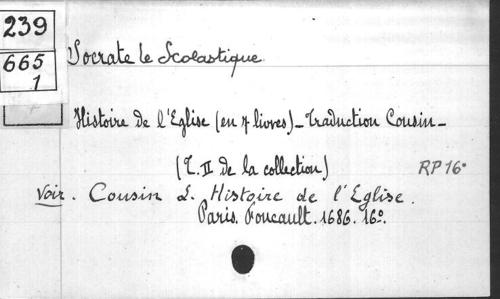 239
665
1
Socrate le Scolastique
Histoire de l'Eglise (en 7 livres) _ Traduction Cousin _
(T. II de la collection)
RP 16°
Voir. Cousin L. Histoire de l'Eglise.
Paris. Foucault. 1686. 16º.